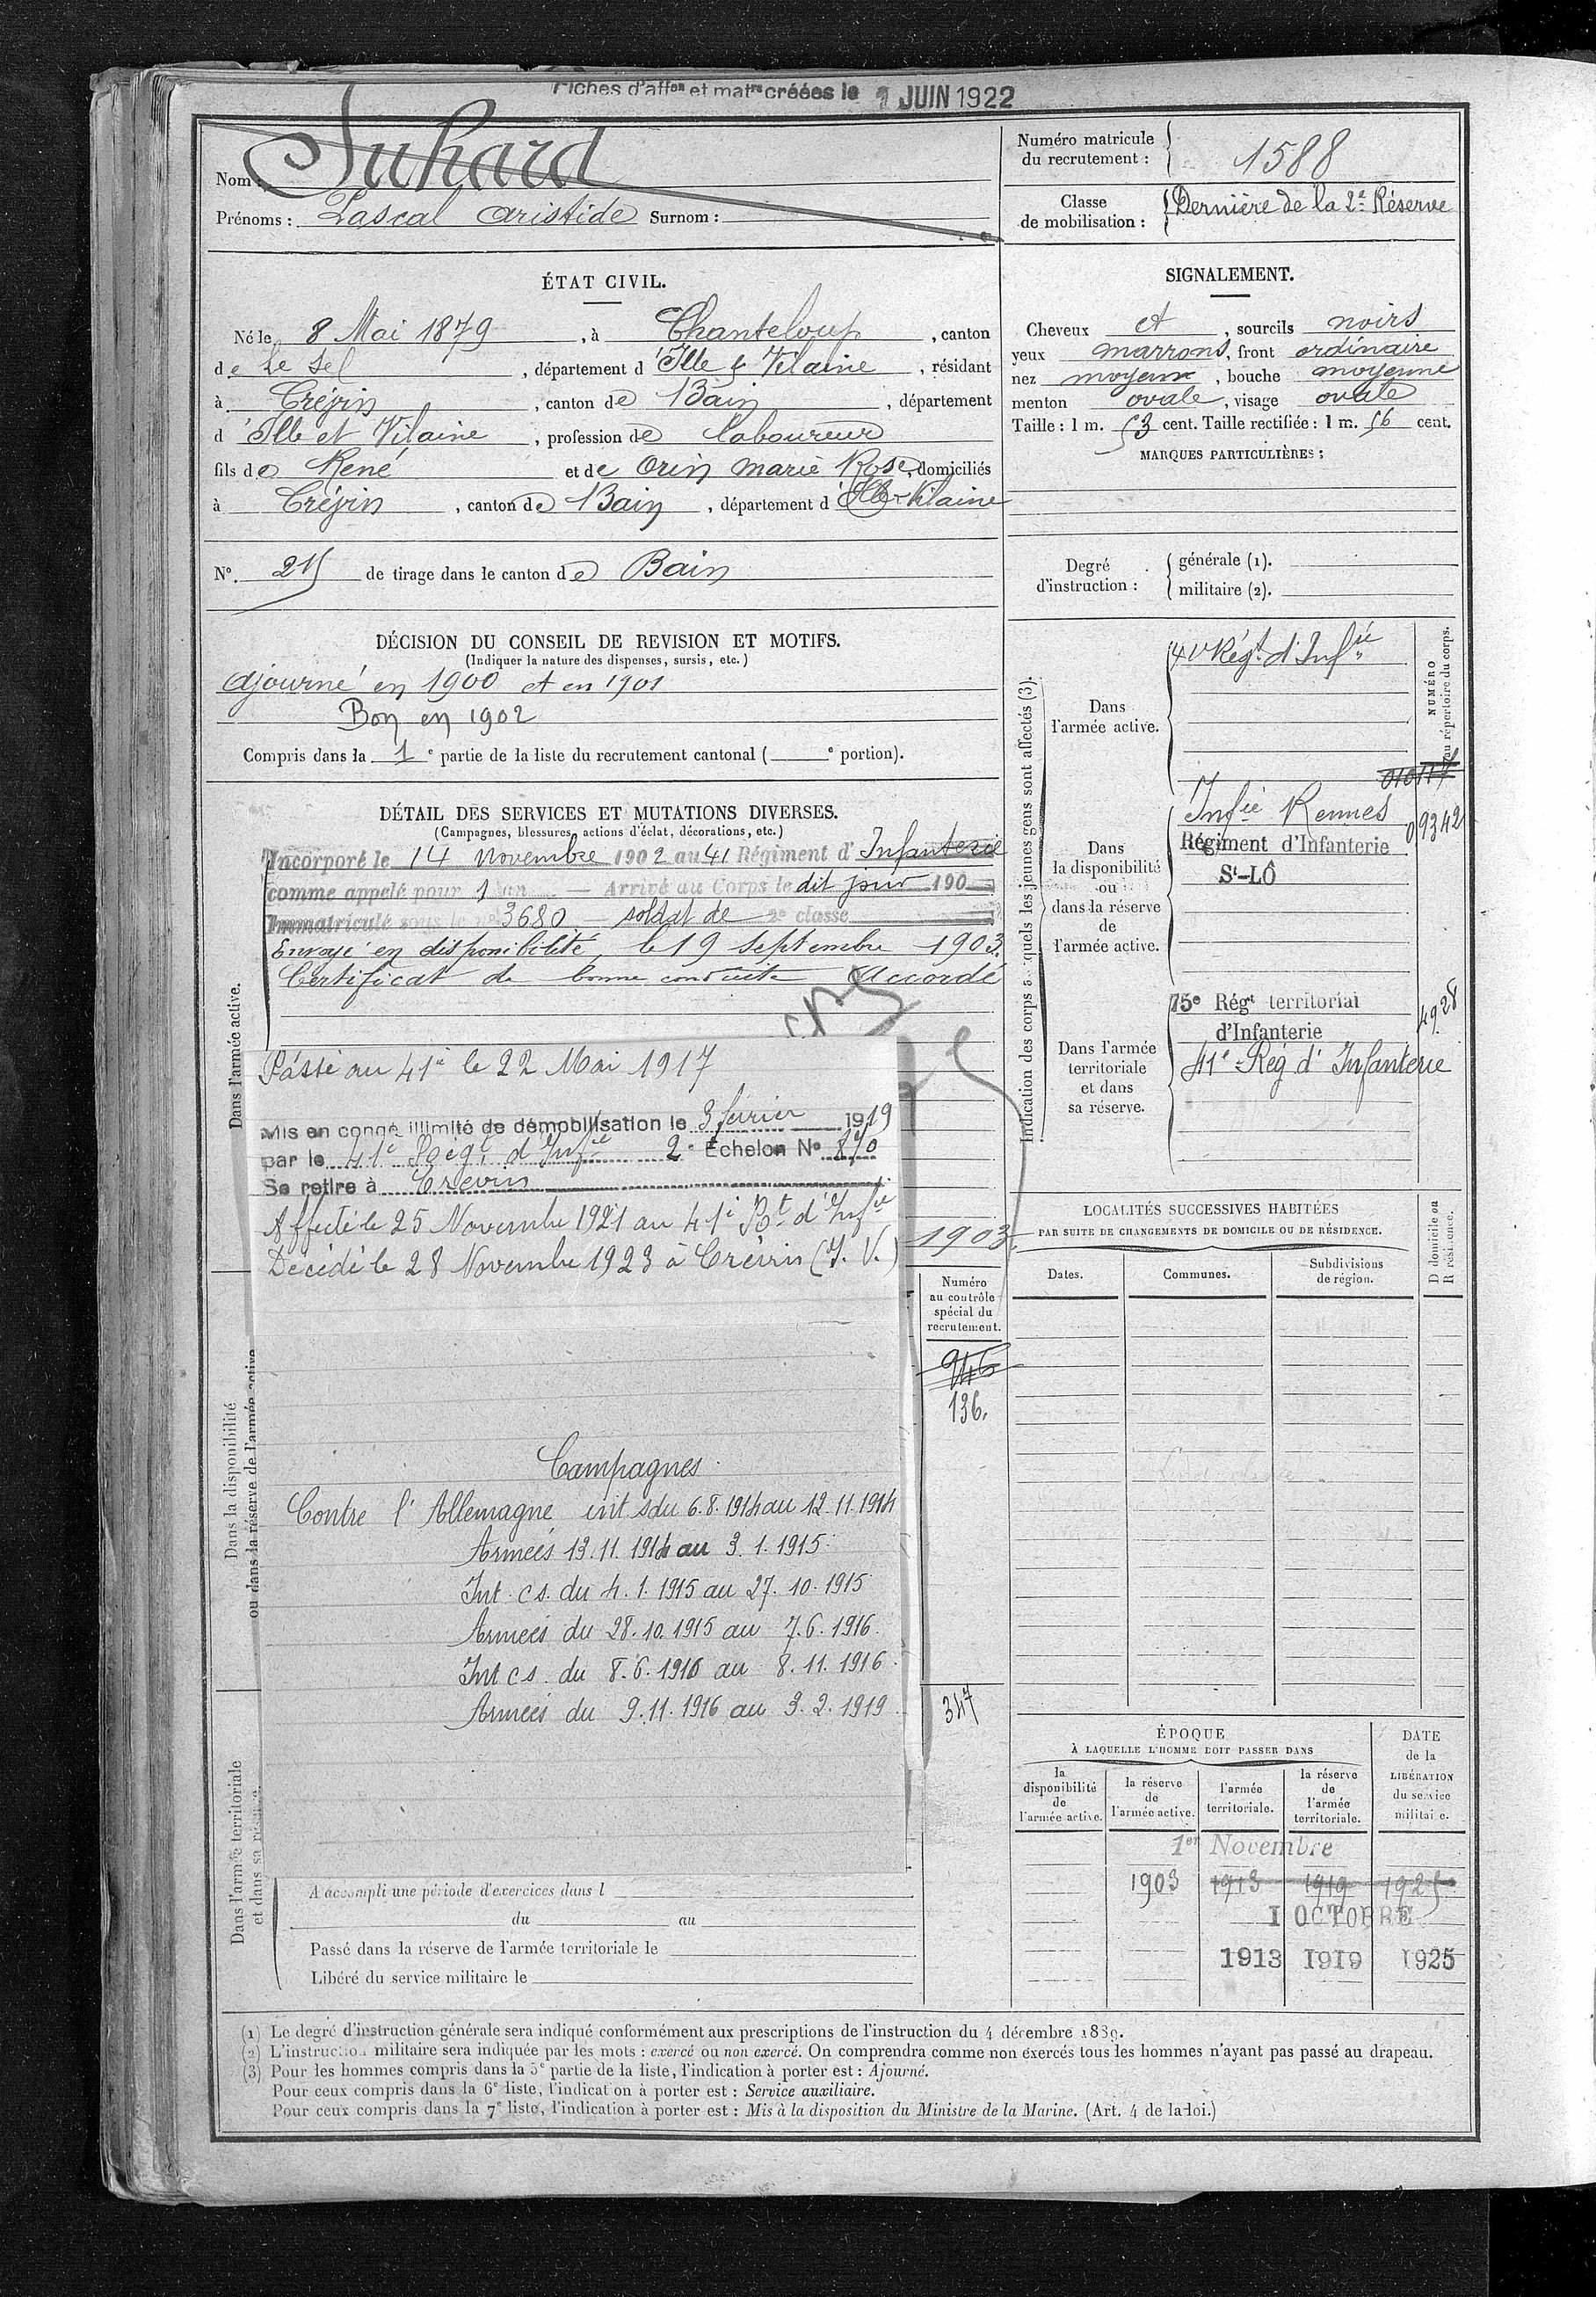 Fiches d'affon et matres créées le 1 JUIN 1922
Nom : Suhard
Prénoms : Pascal Aristide Surnom :
Numéro matricule du recrutement : 1588
Classe de mobilisation : Dernière de la 2e Réserve
ÉTAT CIVIL.
Né le 8 Mai 1879, à Chanteloup, canton
de Le Sel, département d'Ille & Vilaine, résidant
à Crévin, canton de Bain, département
d'Ille et Vilaine, profession de laboureur
fils de René et de Orin Marie Rose, domiciliés
à Crévin, canton de Bain, département d'Ille & Vilaine
N°. 25 de tirage dans le canton de Bain
DÉCISION DU CONSEIL DE REVISION ET MOTIFS.
(Indiquer la nature des dispenses, sursis, etc.)
Ajourné en 1900 et en 1901
Bon en 1902
Compris dans la 1e partie de la liste du recrutement cantonal ( e portion).
DÉTAIL DES SERVICES ET MUTATIONS DIVERSES.
(Campagnes, blessures, actions d'éclat, décorations, etc.)
Dans l'armée active.
Incorporé le 14 novembre 1902 au 41 Régiment d'Infanterie
comme appelé pour 1 an — Arrivé au Corps le dit jour 190
Immatriculé sous le no 3680 — soldat de 2e classe
Envoyé en disponibilité, le 19 septembre 1903.
Certificat de bonne conduite Accordé
Passé au 41e le 22 Mai 1917
Mis en congé illimité de démobilisation le 3 février 1919
par le 41e Régt d'Infie 2e Echelon No 870
Se retire à Crevin
Affecté le 25 Novembre 1921 au 41e Rt d'Infie
Décédé le 28 Novembre 1923 à Crévin (I. V.)
1903.
Numéro au contrôle spécial du recrutement.
946
136.
347
Dans la disponibilité ou dans la réserve de l'armée active
Campagnes
Contre l'Allemagne int s du 6.8.1914 au 12.11.1914
Armées 13.11.1914 au 3.1.1915
Int. cs. du 4.1.1915 au 27.10.1915
Armées du 28.10.1915 au 7.6.1916.
Int cs. du 8.6.1916 au 8.11.1916.
Armées du 9.11.1916 au 3.2.1919.
Dans l'armée territoriale et dans sa réserve.
A accompli une période d'exercices dans l
du au
Passé dans la réserve de l'armée territoriale le
Libéré du service militaire le
SIGNALEMENT.
Cheveux et, sourcils noirs
yeux marrons, front ordinaire
nez moyenne, bouche moyenne
menton ovale, visage ovale
Taille : 1 m. 53 cent. Taille rectifiée : 1 m. 56 cent.
MARQUES PARTICULIÈRES :
Degré d'instruction :
générale (1).
militaire (2).
Indication des corps auxquels les jeunes gens sont affectés (3).
NUMÉRO au répertoire du corps.
Dans l'armée active.
41e Régt d'Infie
Dans la disponibilité ou dans la réserve de l'armée active.
Infie Rennes
09342
Régiment d'Infanterie
St-LÔ
Dans l'armée territoriale et dans sa réserve.
75e Régt territorial
d'Infanterie
4928
41e Rég d'Infanterie
LOCALITÉS SUCCESSIVES HABITÉES
PAR SUITE DE CHANGEMENTS DE DOMICILE OU DE RÉSIDENCE.
D domicile ou R résidence.
Dates. Communes. Subdivisions de région.
ÉPOQUE
À LAQUELLE L'HOMME DOIT PASSER DANS
DATE de la LIBÉRATION du service militaire.
la disponibilité de l'armée active.
la réserve de l'armée active.
l'armée territoriale.
la réserve de l'armée territoriale.
1er Novembre
1903 1913 1919 1925
1 OCTOBRE
1913 1919 1925
(1) Le degré d'instruction générale sera indiqué conformément aux prescriptions de l'instruction du 4 décembre 1889.
(2) L'instruction militaire sera indiquée par les mots : exercé ou non exercé. On comprendra comme non exercés tous les hommes n'ayant pas passé au drapeau.
(3) Pour les hommes compris dans la 5e partie de la liste, l'indication à porter est : Ajourné.
Pour ceux compris dans la 6e liste, l'indication à porter est : Service auxiliaire.
Pour ceux compris dans la 7e liste, l'indication à porter est : Mis à la disposition du Ministre de la Marine. (Art. 4 de la loi.)